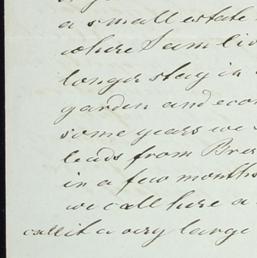 a small estate
where I am liv
longer stay in
garden and econ
some years we s
leads from Bre
in a few months
we call here a
call it a very large